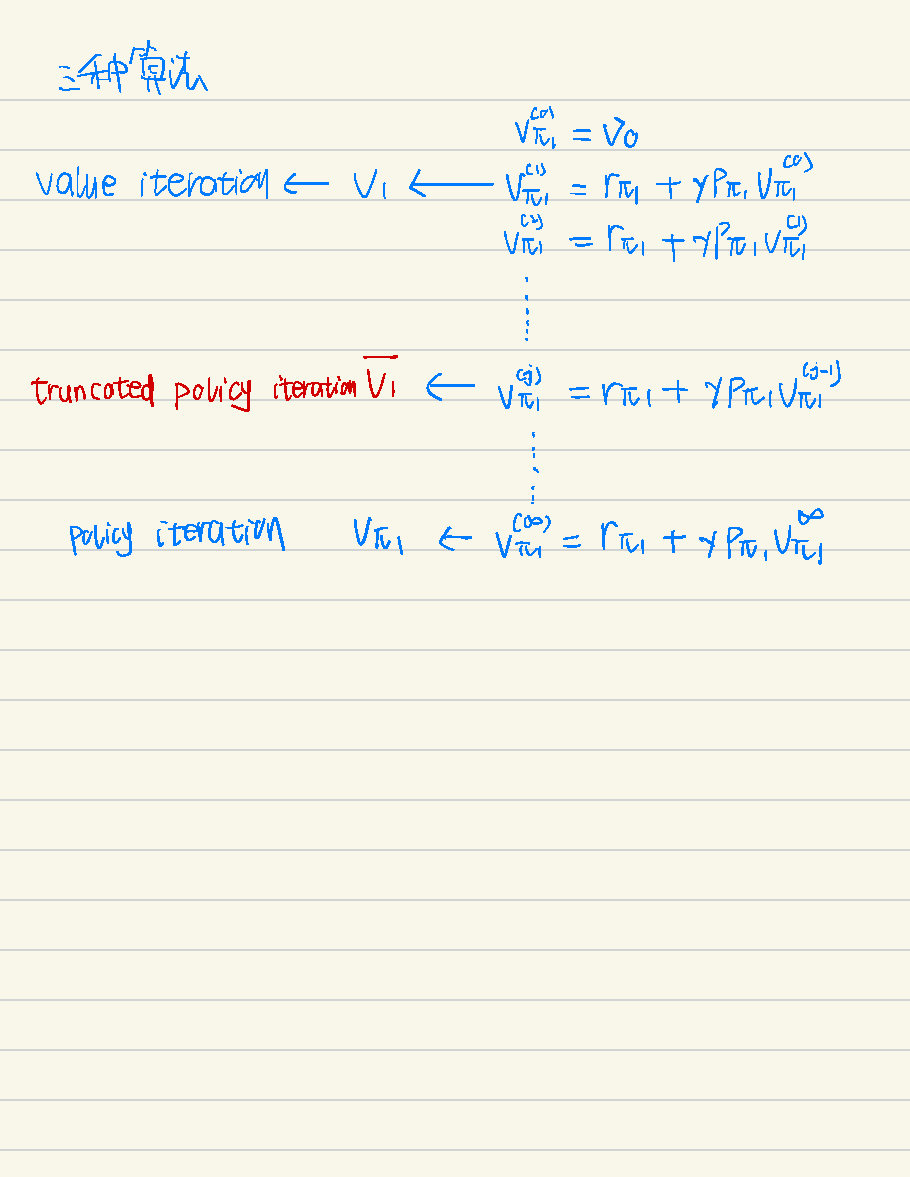 三种算法
v_{π_1}^{(0)} = v_0
value iteration ← v_1 ← v_{π_1}^{(1)} = r_{π_1} + γP_{π_1} v_{π_1}^{(0)}
v_{π_1}^{(2)} = r_{π_1} + γP_{π_1} v_{π_1}^{(1)}
⋮
truncated policy iteration \overline{v_1} ← v_{π_1}^{(j)} = r_{π_1} + γP_{π_1} v_{π_1}^{(j-1)}
⋮
policy iteration v_{π_1} ← v_{π_1}^{(∞)} = r_{π_1} + γP_{π_1} v_{π_1}^{∞}